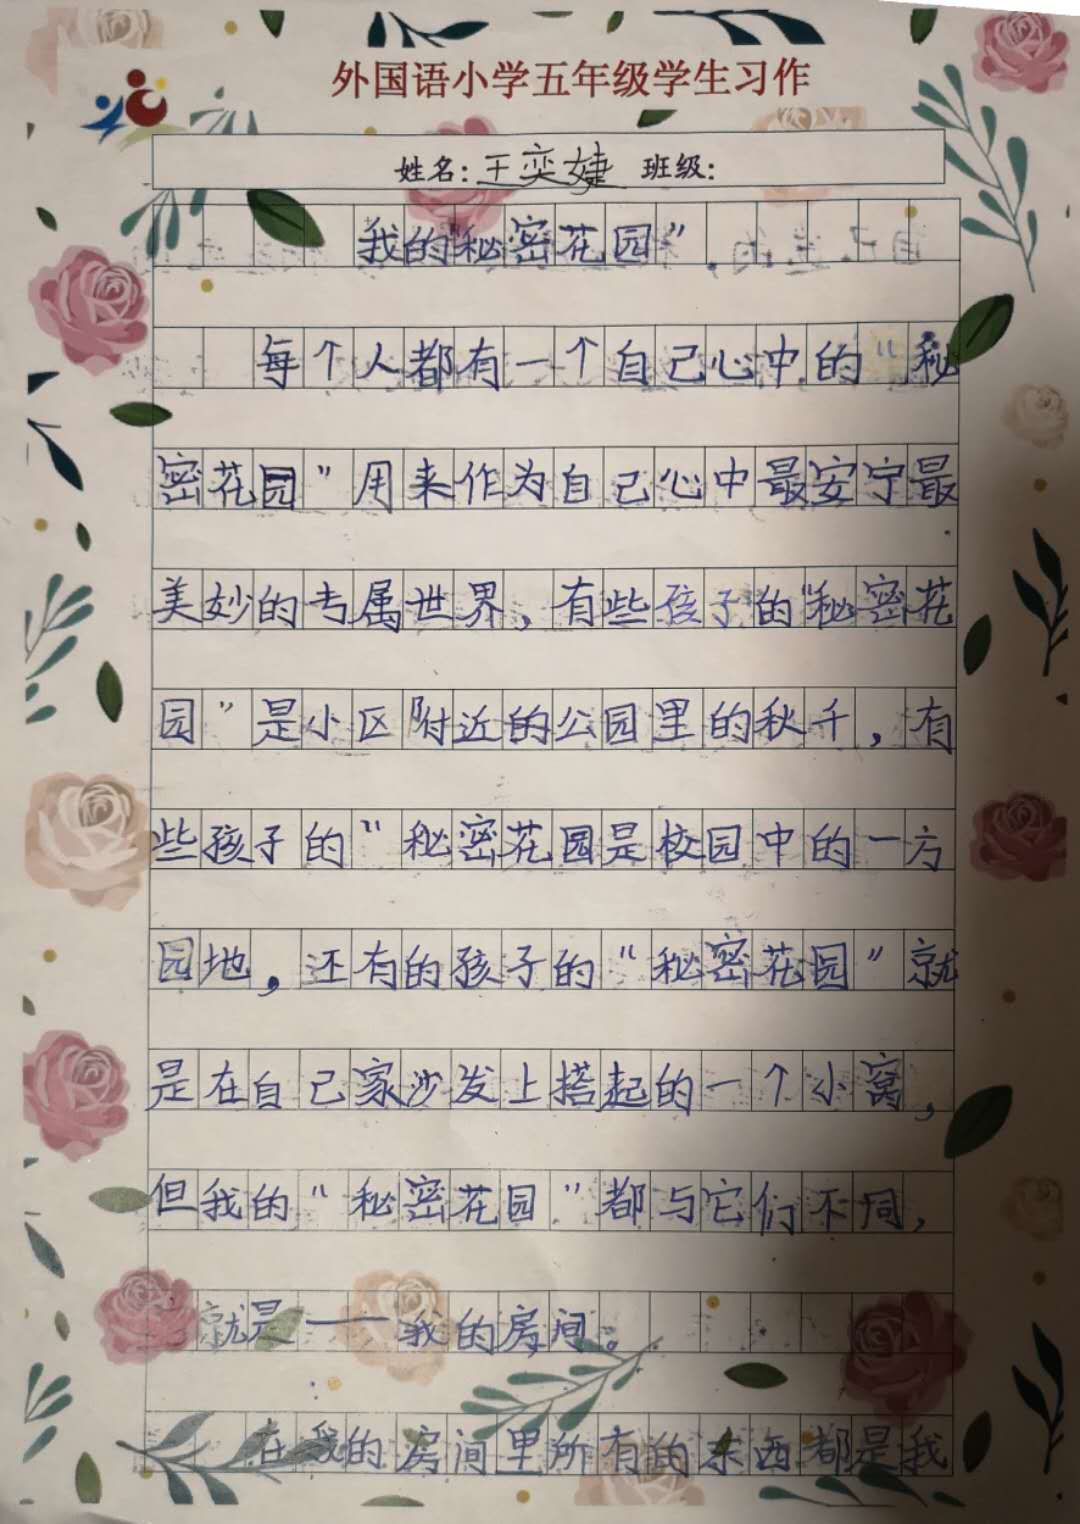 外国语小学五年级学生习作
姓名：王奕婕 班级：
我的“秘密花园”
每个人都有一个自己心中的“秘
密花园”用来作为自己心中最安宁最
美妙的专属世界，有些孩子的“秘密花
园”是小区附近的公园里的秋千，有
些孩子的“秘密花园是校园中的一方
园地，还有的孩子的“秘密花园”就
是在自己家沙发上搭起的一个小窝，
但我的“秘密花园”都与它们不同，
就是——我的房间。
在我的房间里所有的东西都是我